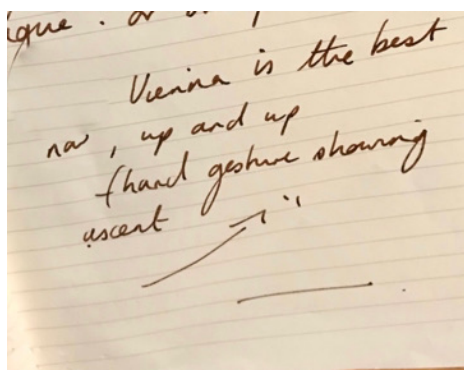 Vienna is the best
now, up and up
(hand gesture showing
ascent